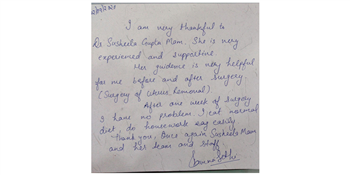 I am very thankful to
Dr Susheela Gupta Mam. She is very
experienced and supportive
Her guidence is very helpful
for me before and after surgery.
(Surgery of Uterus Removal)
After one week of surgery
I have no problem I eat normal
diet, do housework easily
Thank you, Once again Susheela Mam
and her team and staff.